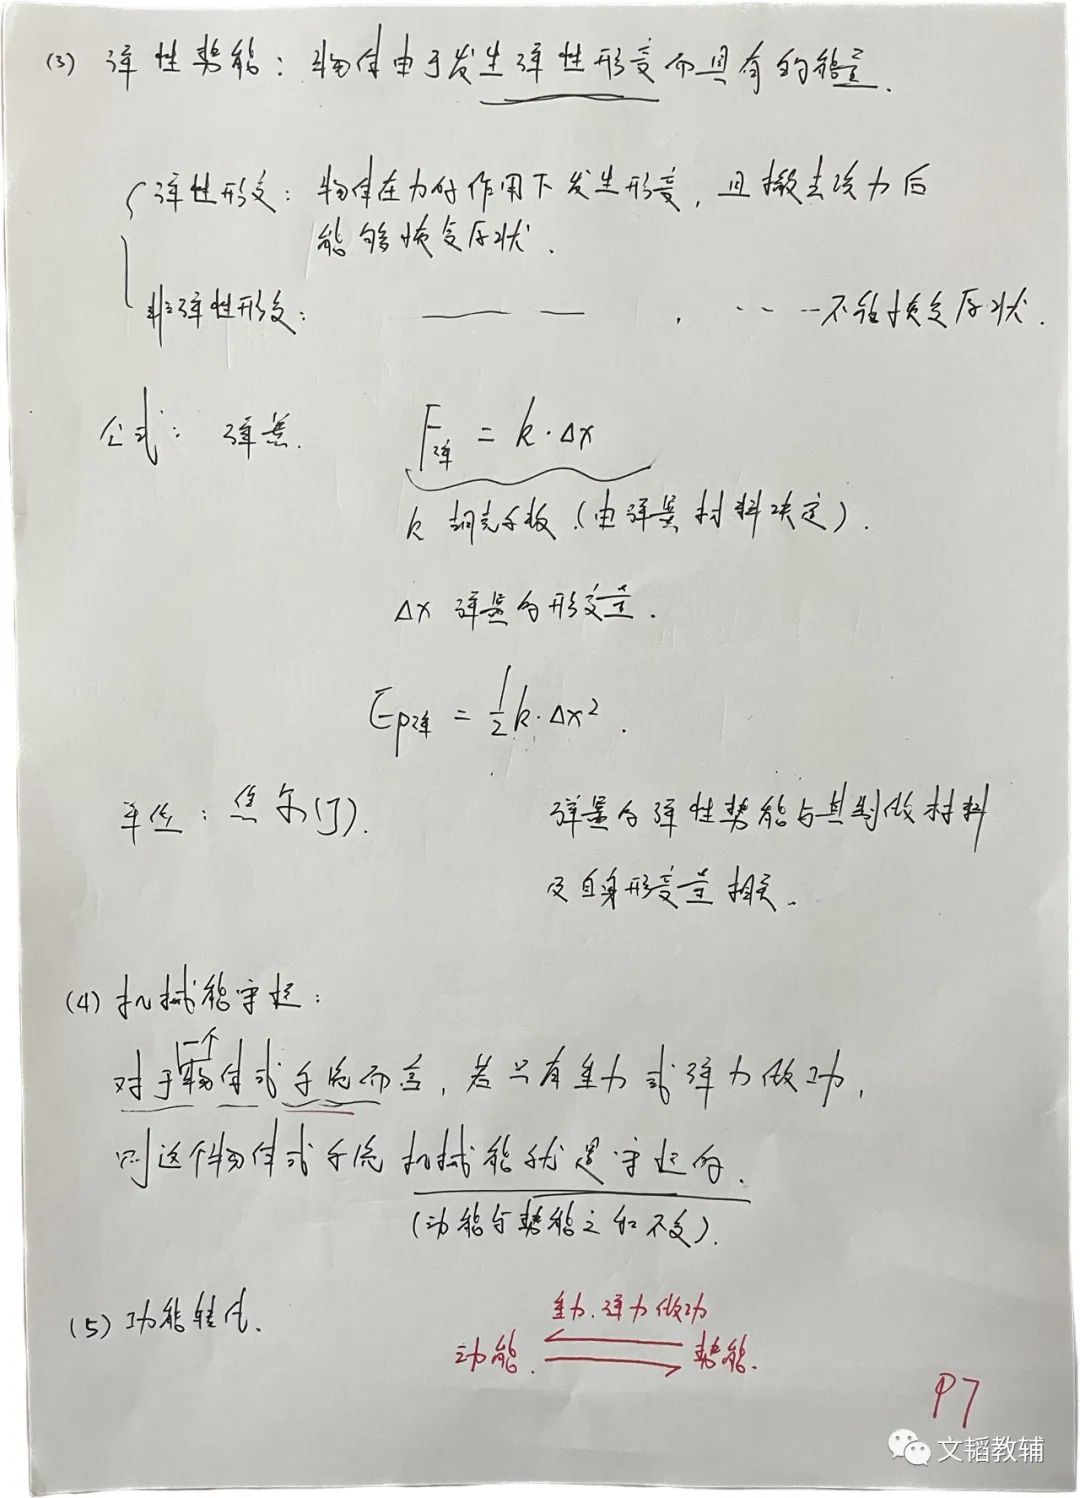 (3) 弹性势能：物体由于发生弹性形变而具有的能量.
弹性形变：物体在力的作用下发生形变，且撤去该力后
能够恢复原状.
非弹性形变： —— — ， ···—不能恢复原状.
公式：弹簧. F弹 = k·Δx
k 胡克系数（由弹簧材料决定）.
Δx 弹簧的形变量.
Ep弹 = ½k·Δx².
单位：焦尔(J).
弹簧的弹性势能与其制做材料
及自身形变量相关.
(4) 机械能守恒：
对于一个物体或系统而言，若只有重力或弹力做功，
则这个物体或系统机械能就是守恒的.
(动能与势能之和不变).
(5) 功能转化.
重力.弹力做功
动能. 势能.
P7
文韬教辅